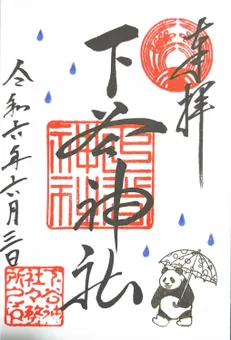 奉拝
下谷神社
令和六年六月三日
下谷神社
下谷神
社々務
所之印